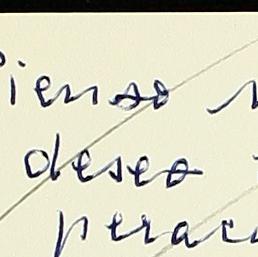 Pienso
deseo
perac